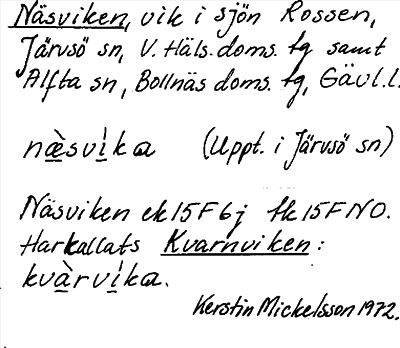 Näsviken, vik i sjön Rossen,
Järvsö sn, V. Häls. doms. tg samt
Alfta sn, Bollnäs doms. tg, Gävl.l.
næ̀svi̱ka (Uppt. i Järvsö sn)
Näsviken ek 15F6j tk 15F NO.
Har kallats Kvarnviken:
kvàrvi̱ka.
Kerstin Mickelsson 1972.